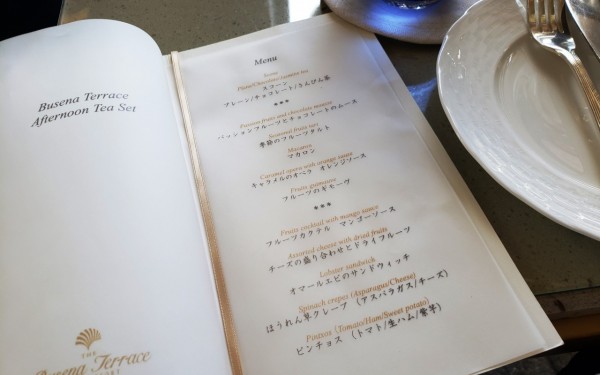 Busena Terrace
Afternoon Tea Set
THE
Busena Terrace
Menu
Scone
Plain/Chocolate/Jasmine tea
スコーン
プレーン/チョコレート/さんぴん茶
***
Passion fruits and chocolate mousse
パッションフルーツとチョコレートのムース
Seasonal fruits tart
季節のフルーツタルト
Macaron
マカロン
Caramel opera with orange sauce
キャラメルのオペラ オレンジソース
Fruits guimauve
フルーツのギモーヴ
***
Fruits cocktail with mango sauce
フルーツカクテル マンゴーソース
Assorted cheese with dried fruits
チーズの盛り合わせとドライフルーツ
Lobster sandwich
オマールエビのサンドウィッチ
Spinach crepes (Asparagus/Cheese)
ほうれん草クレープ (アスパラガス/チーズ)
Pinxtos (Tomato/Ham/Sweet potato)
ピンチョス (トマト/生ハム/紫芋)